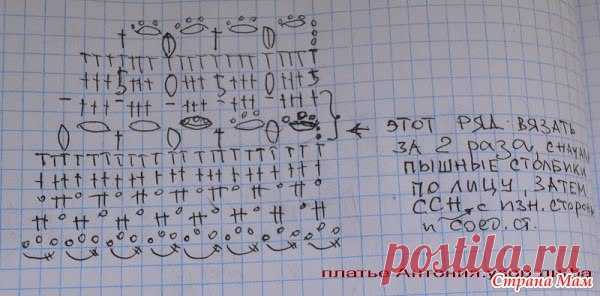 ЭТОТ РЯД ВЯЗАТЬ
ЗА 2 раза, СНАЧАЛ
ПЫШНЫЕ СТОЛБИКИ
ПО ЛИЦУ, ЗАТЕМ
ССН с ИЗН. СТОРОНЫ
и СОЕД. СТ.
платье Антония.узор
postila.ru
Страна Мам